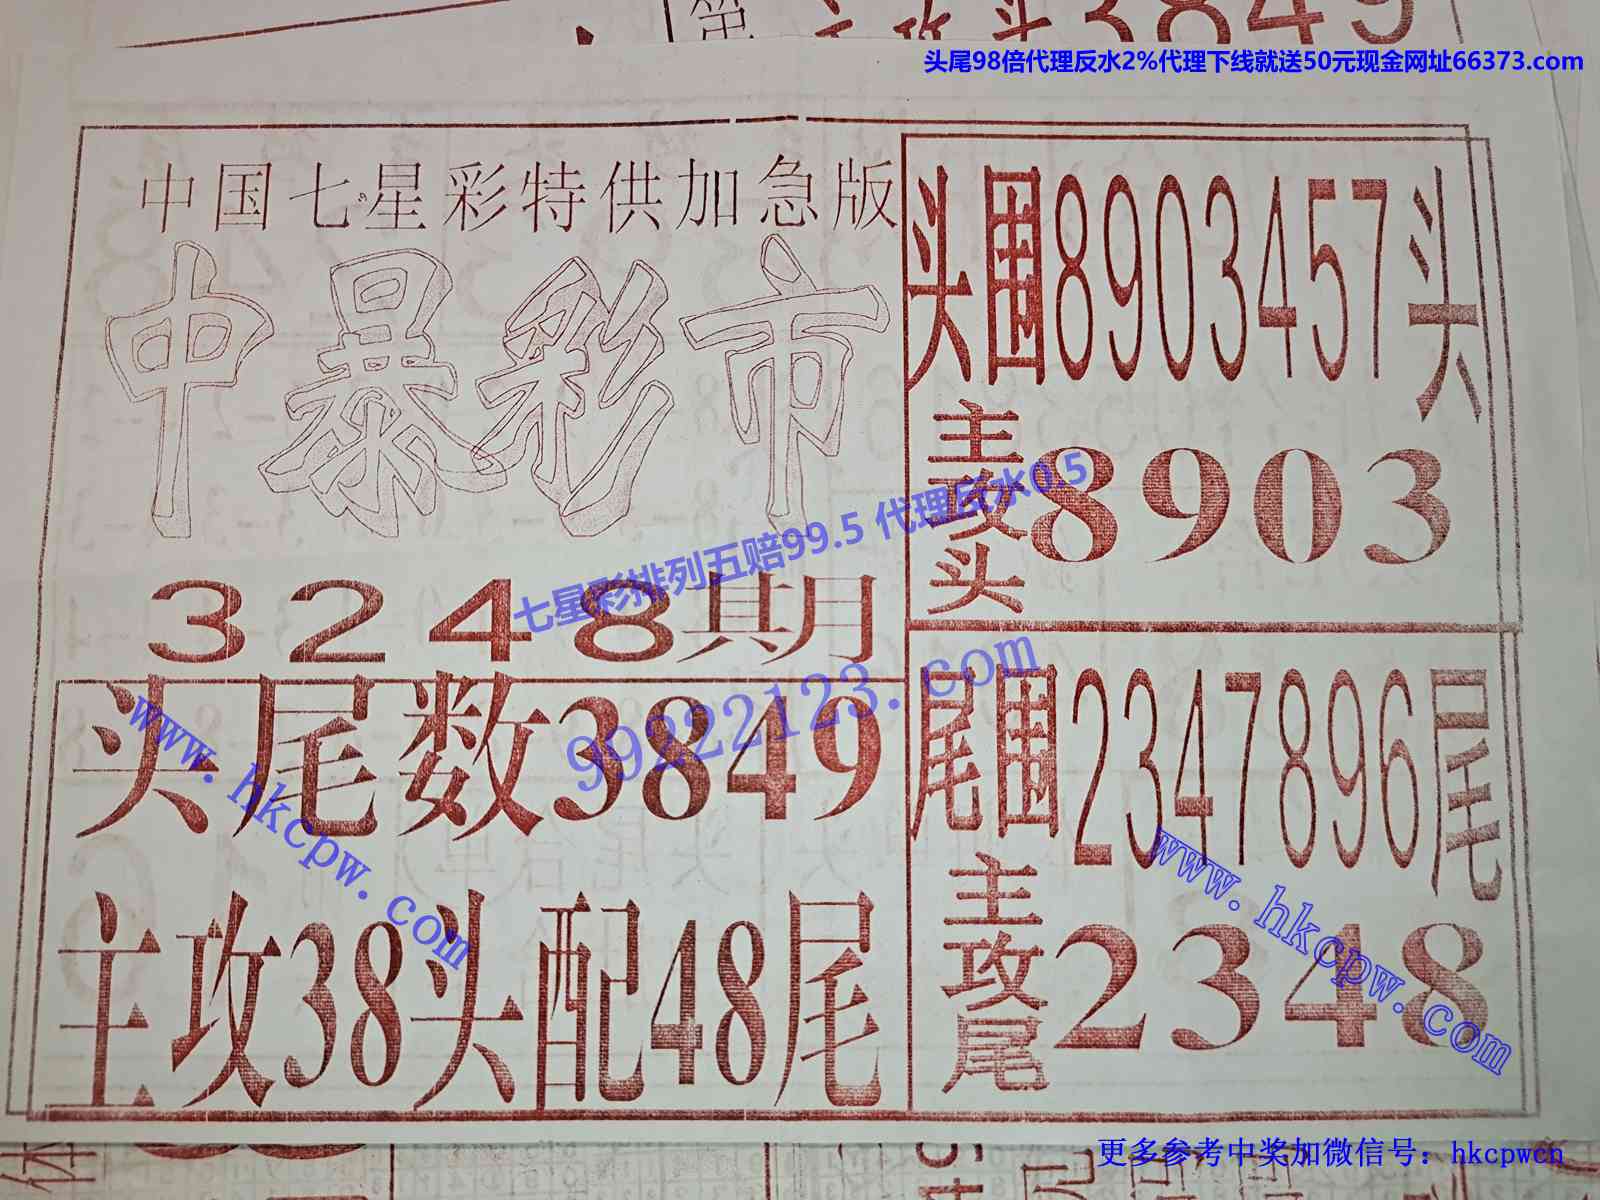 第
主攻头3849
头尾98倍代理反水2%代理下线就送50元现金网址66373.com
中国七星彩特供加急版
中暴彩市
3248期
头尾数3849
主攻38头配48尾
头围8903457头
主攻头8903
尾围2347896尾
主攻尾2348
七星彩排列五赔99.5 代理反水0.5
99222123.com
www.hkcpw.com
www.hkcpw.com
更多参考中奖加微信号：hkcpwcn